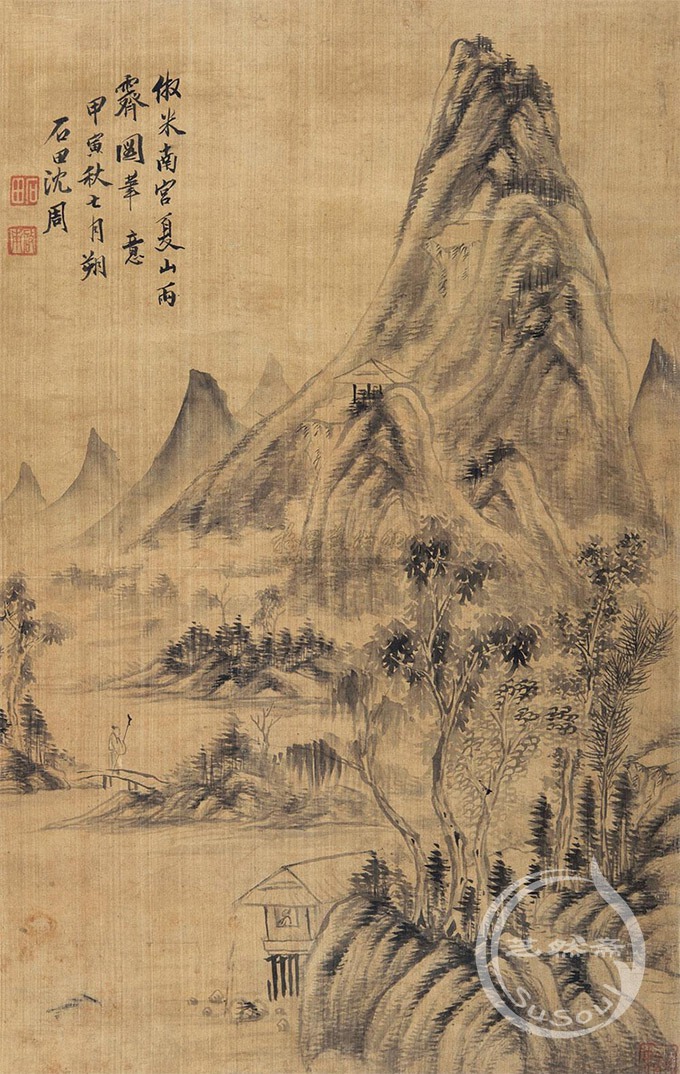 倣米南宫夏山雨
霽圖筆意
甲寅秋七月朔
石田沈周
石田
SuSoul